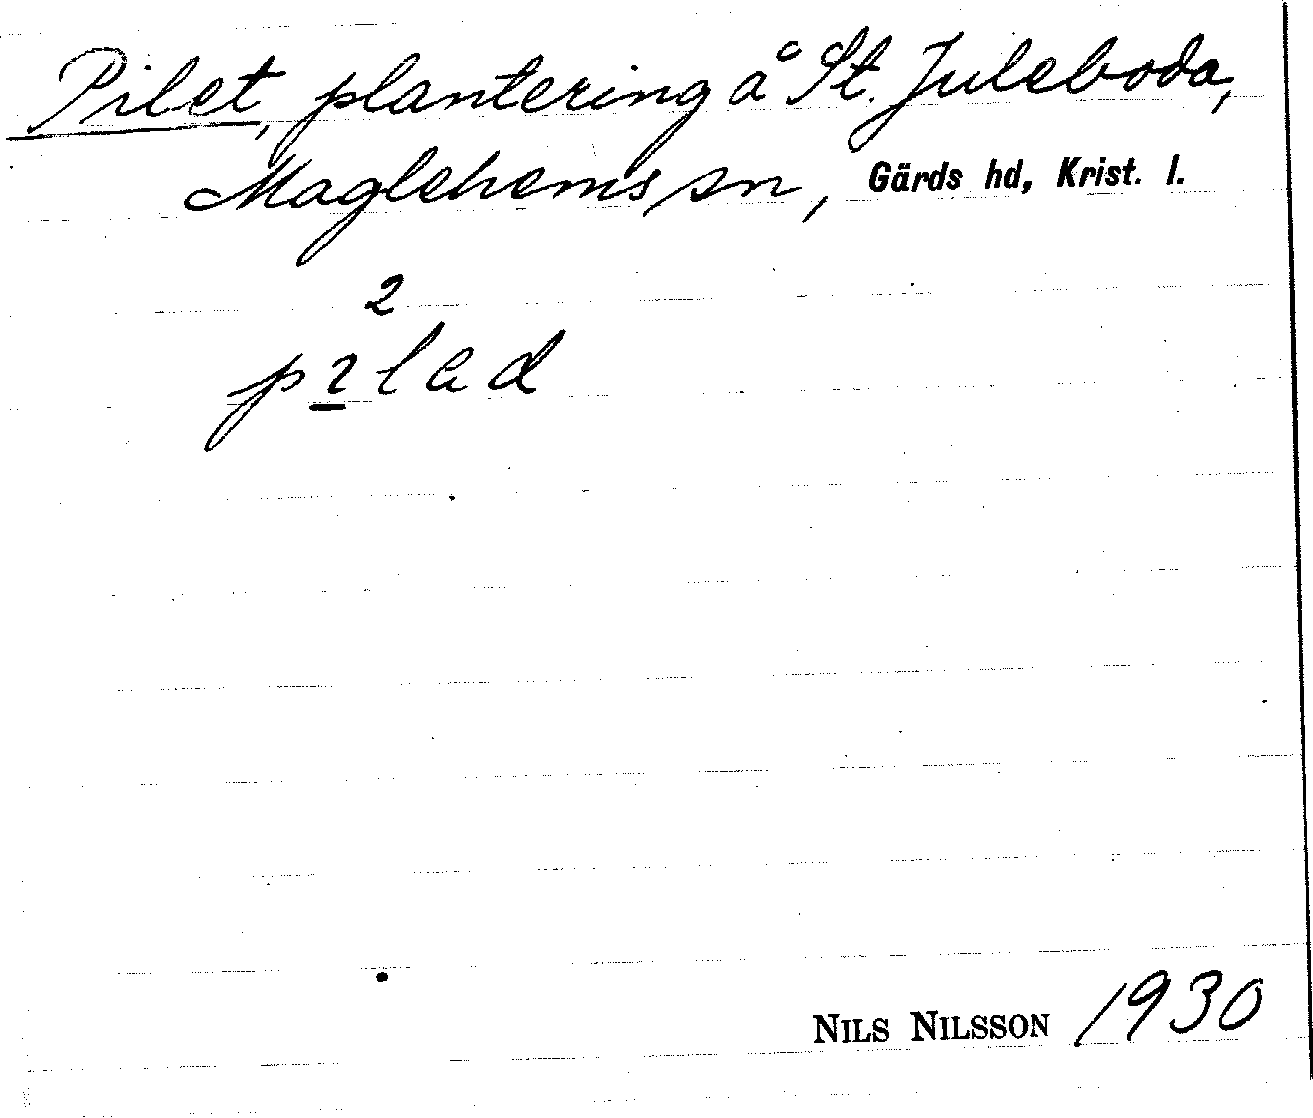 Pilet, plantering å St. Juleboda,
Maglehems sn, Gärds hd, Krist. l.
2
pılad
NILS NILSSON 1930